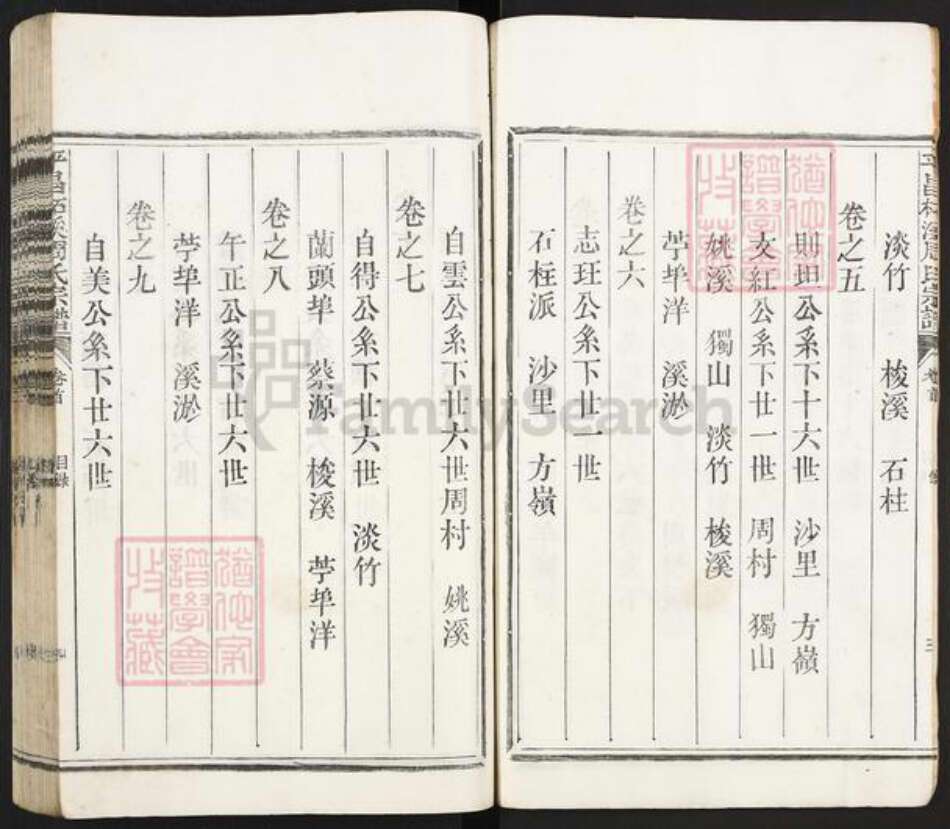 淡竹 梭溪 石柱
卷之五
則坦公系下十六世 沙里 方嶺
文紅公系下廿一世 周村 獨山
姚溪 獨山 淡竹 梭溪
苧埠洋 溪淤
卷之六
志玨公系下廿一世
石柱派 沙里 方嶺
自雲公系下廿六世周村 姚溪
卷之七
自得公系下廿六世 淡竹
蘭頭埠 蔡源 梭溪 苧埠洋
卷之八
午正公系下廿六世
苧埠洋 溪淤
卷之九
自美公系下廿六世
周氏宗譜 卷首 目錄
FamilySearch
譜學會
收藏